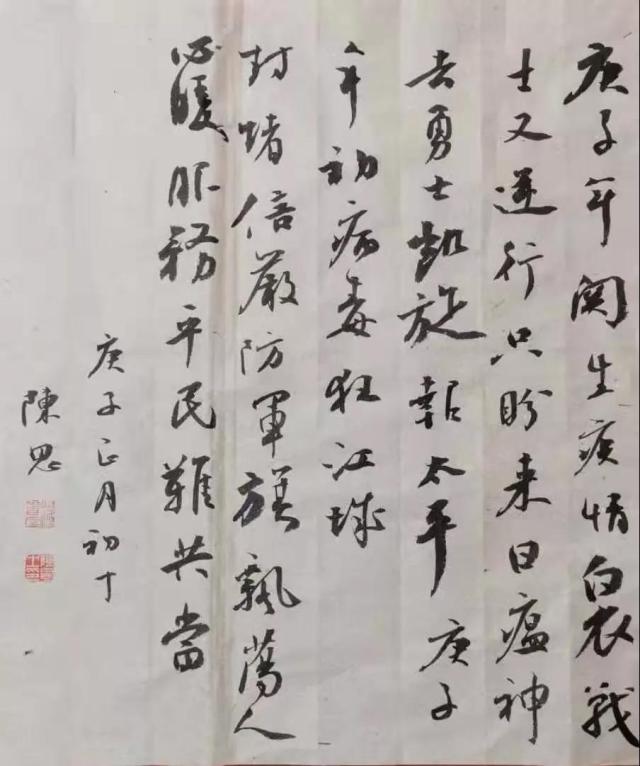 庚子年関生疫情白衣戰
士又逆行只盼来日瘟神
去勇士凱旋報太平 庚子
年初病毒狂江城
封堵倍嚴防軍旗飄蕩人
心暖服務平民難共當
庚子正月初十
陳思